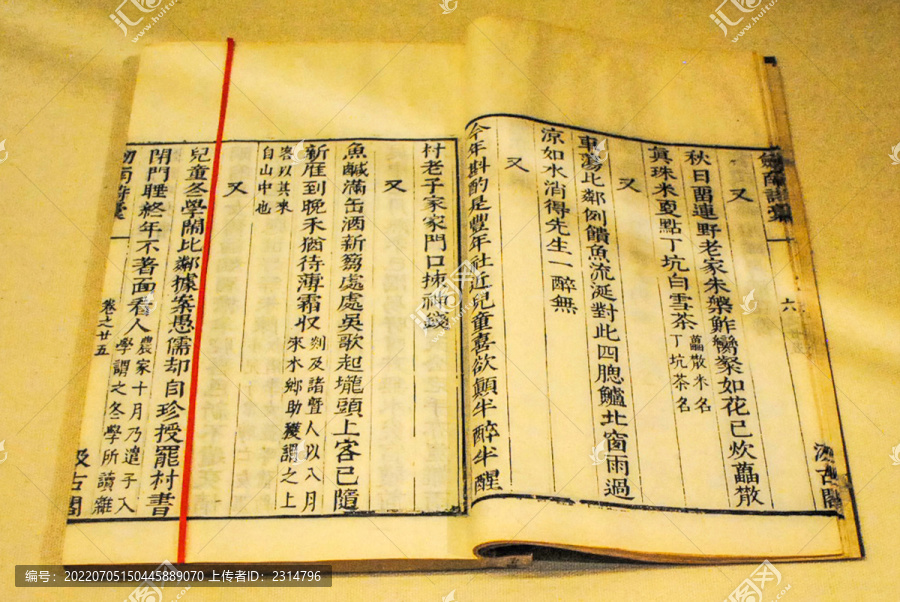 劍南詩藁
六
汲古閣
又
秋日畱連野老家朱槃鮓臠粲如花已炊虀散
真珠米更點丁坑白雪茶
虀散米名
丁坑茶名
又
車蕩比鄰例饋魚流涎對此四腮鱸北窗雨過
涼如水消得先生一醉無
又
今年斟酌是豐年社近兒童喜欲顛半醉半醒
村老子家家門口神錢
又
魚鹹滿缶酒新篘處處吳歌起壠頭上客已隨
新雁到晚禾猶待薄霜收
剡及諸暨人以八月
來水鄉助穫謂之上
客以其來
自山中也
又
兒童冬學鬧比鄰據案愚儒却自珍授罷村書
閉門睡終年不著面看人
農家十月乃遣子入
學謂之冬學所讀雜
劍南詩藁
卷之廿五
汲古閣
编号:20220705150445889070 上传者ID:2314796